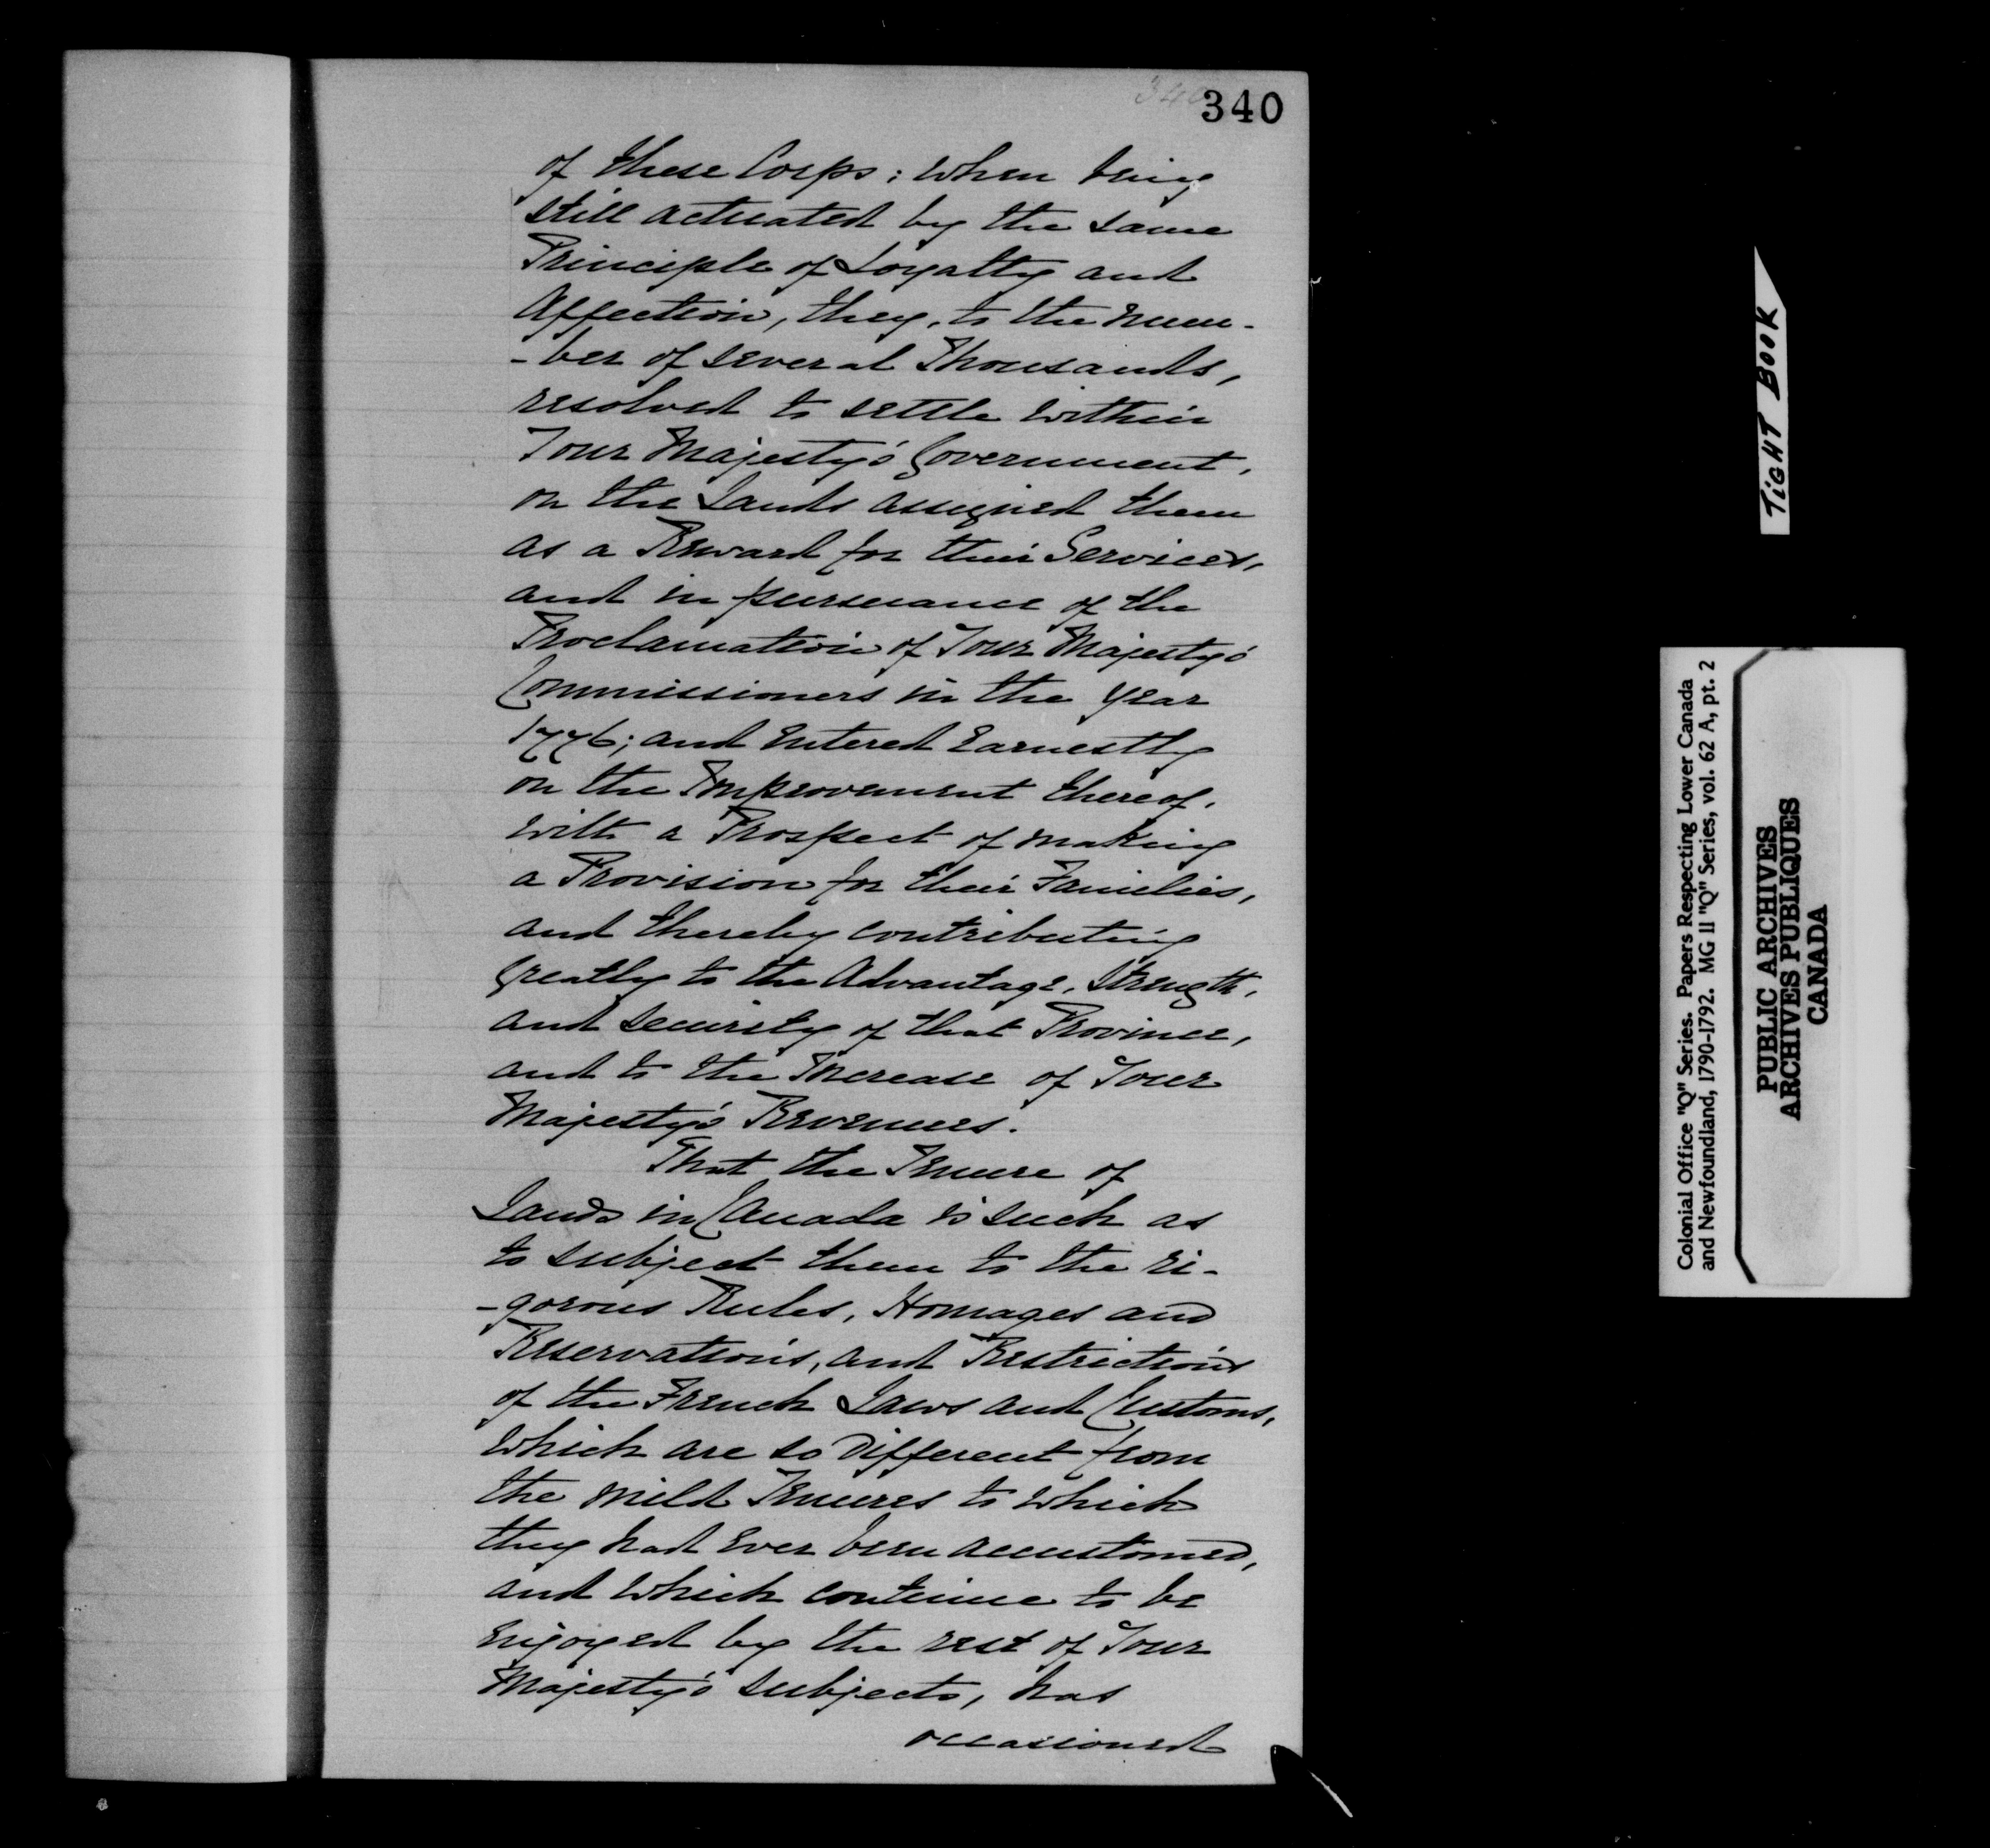 340
340
of these Corps; when being
still actuated by the same
Principle of Loyalty and
Affection, they, to the num-
-ber of several Thousands,
resolved to settle within
Your Majesty's Government,
on the Lands assigned them
as a Reward for their Services,
and in pursuance of the
Proclamation of Your Majesty's
Commissioners in the year
1776; and Entered Earnestly
on the Improvement thereof,
with a Prospect of making
a Provision for their Families,
and thereby contributing
greatly to the Advantage, Strength,
and Security of that Province,
and to the Increase of Your
Majesty's Revenues.
That the Tenure of
Lands in Canada is such as
to subject them to the ri-
-gorous Rules, Homages and
Reservations, and Restrictions
of the French Laws and Customs,
which are so different from
the mild Tenures to which
they had Ever been accustomed,
and which continue to be
Enjoyed by the rest of Your
Majesty's Subjects, has
occasioned
TIGHT BOOK
Colonial Office "Q" Series. Papers Respecting Lower Canada
and Newfoundland, 1790-1792. MG 11 "Q" Series, vol. 62 A, pt. 2
PUBLIC ARCHIVES
ARCHIVES PUBLIQUES
CANADA